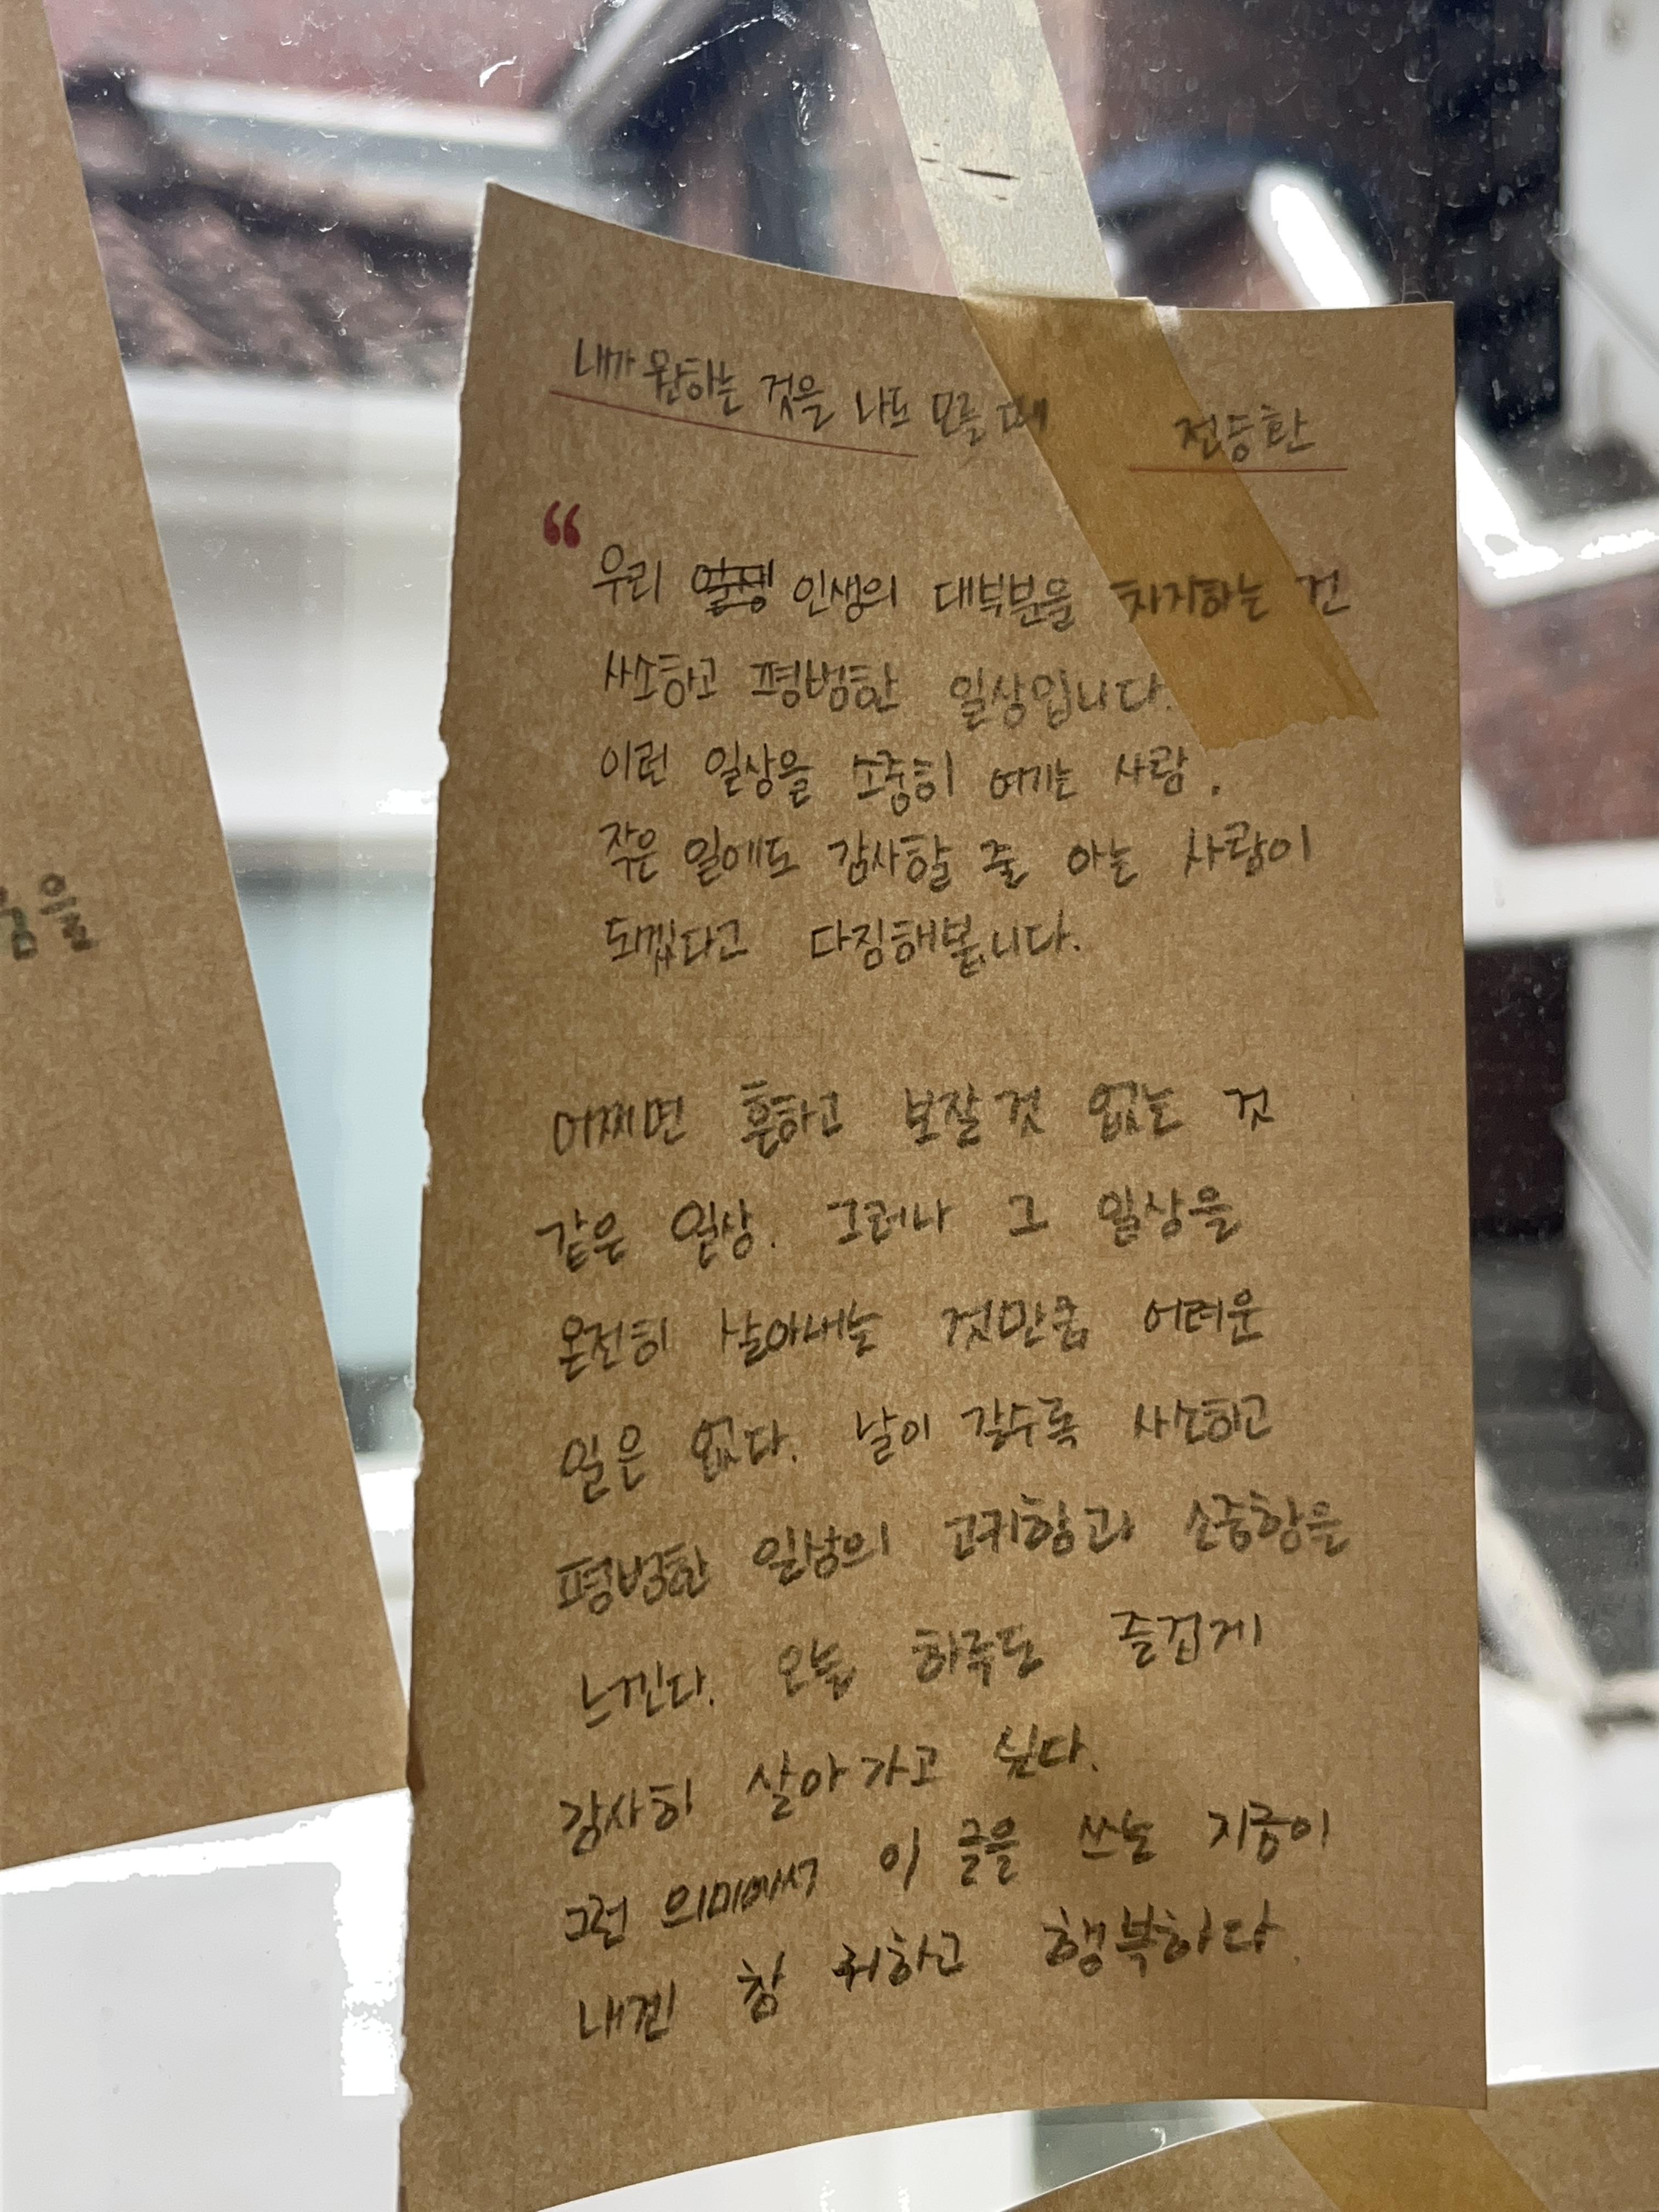 내가 원하는 것을 나도 모를 때 전승환
“
우리 인생의 대부분을 차지하는 건
사소하고 평범한 일상입니다.
이런 일상을 소중히 여기는 사람,
작은 일에도 감사할 줄 아는 사람이
되겠다고 다짐해봅니다.
어쩌면 흔하고 보잘 것 없는 것
같은 일상. 그러나 그 일상을
온전히 살아내는 것만큼 어려운
일은 없다. 날이 갈수록 사소하고
평범한 일상의 고귀함과 소중함을
느낀다. 오늘 하루도 즐겁게
감사히 살아가고 싶다.
그런 의미에서 이 글을 쓰는 지금이
내겐 참 귀하고 행복하다.
을